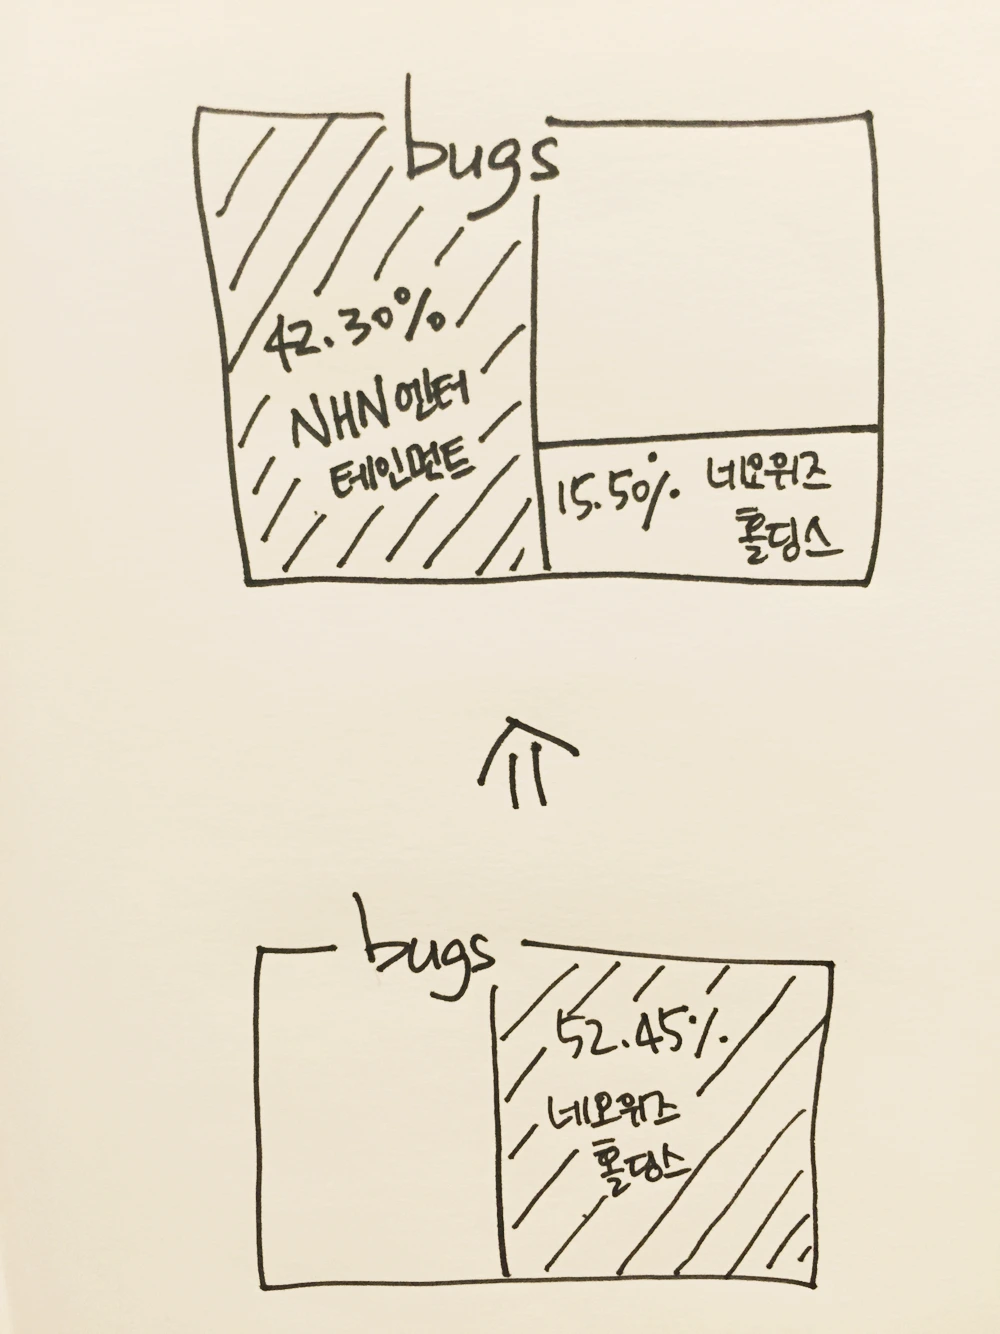 bugs
42.30%
NHN 엔터
테인먼트
15.50% 네오위즈
홀딩스
bugs
52.45%
네오위즈
홀딩스